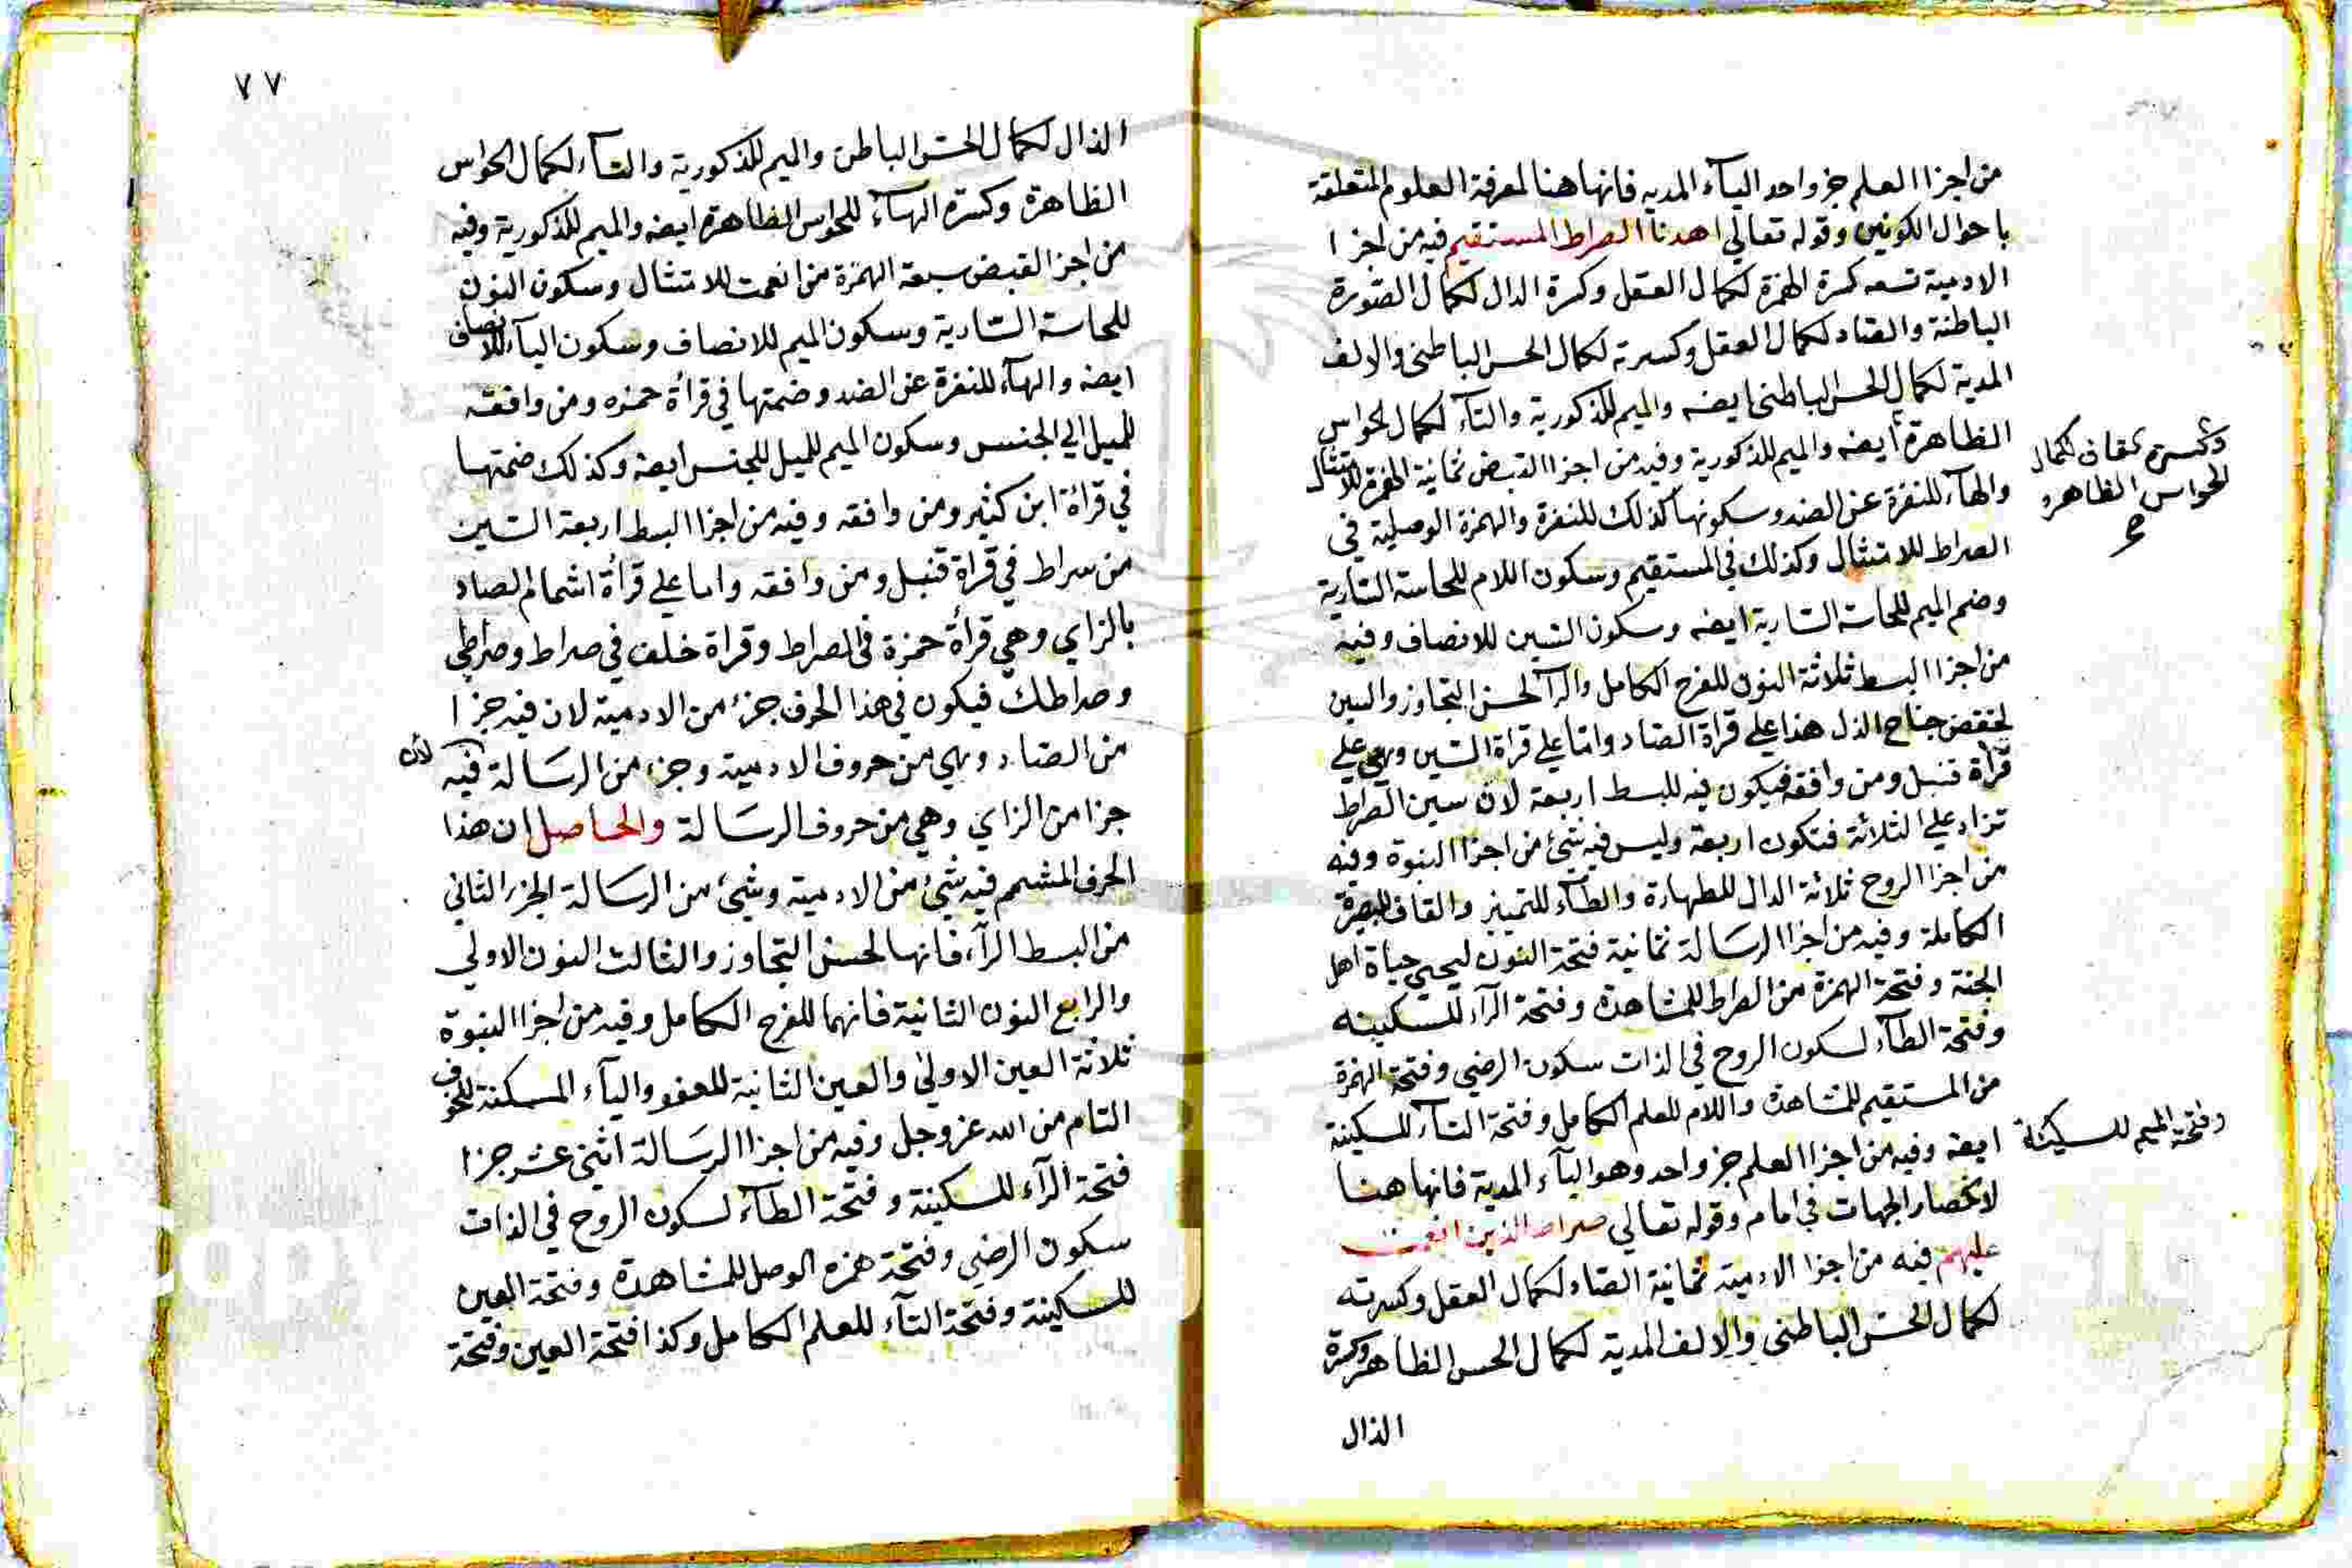 من اجزا العلم جز واحد اليآء المديه فانها هنا لمعرفة العلوم المتعلقة
باحوال الكونين وقوله تعالي اهدنا الصراط المستقيم فيه من اجزا
الادمية تسعه كسرة الهمزة لكمال العقل وكسرة الدال لكمال الصورة
الباطنة والصاد لكمال العقل وكسرته لكمال الحس الباطني والالف
المدية لكمال الحس الباطني ايضه والميم للذكورية والتآء لكمال الحواس
الظاهرة ايضه والميم للذكورية وفيه من اجزا القبض ثمانية الهمزة للامتثال
وكسرة القاف لكمال
الحواس الظاهره
والهآء للنفرة عن الضد وسكونها كذلك للنفرة والهمزة الوصلية في
الصراط للامتثال وكذلك في المستقيم وسكون اللام للحاسة السارية
وضم الميم للحاسة السارية ايضه وسكون السين للانصاف وفيه
من اجزا البسط ثلاثة النون للفرح الكامل والرآ لحسن التجاوز والسين
لخفض جناح الذل هذا علي قراة الصاد واما علي قراة السين وهي علي
قرأة قنبل ومن وافقه فيكون فيه للبسط اربعة لان سين الصراط
تزاد علي الثلاثة فتكون اربعة وليس فيه شيئ من اجزا النبوة وفيه
من اجزا الروح ثلاثة الدال للطهارة والطآء للتمييز والقاف للبصيرة
الكاملة وفيه من اجزا الرسالة ثمانية فتحة النون ليحيي حياة اهل
الجنة وفتحة الهمزة من الصراط للمشاهدة وفتحة الرآء للسكينه
وفتحة الطآء لسكون الروح في الذات سكون الرضي وفتحة الهمزة
من المستقيم للمشاهدة واللام للعلم الكامل وفتحة التآء للسكينة
وفتحة الميم للسكينة
ايضه وفيه من اجزا العلم جز واحد وهو اليآء المدية فانها هنا
لانحصار الجهات في امام وقوله تعالي صراط الذين انعمت
عليهم فيه من اجزا الادمية ثمانية الصاد لكمال العقل وكسرته
لكمال الحس الباطني والالف المدية لكمال الحس الظاهر وكسرة
الذال
٧٧
الذال لكمال الحس الباطن والميم للذكورية والتآء لكمال الحواس
الظاهرة وكسرة الهآء للحواس الظاهرة ايضه والميم للذكورية وفيه
من اجزا القبض سبعة الهمزة من انعمت للامتثال وسكون النون
للحاسة السارية وسكون الميم للانصاف وسكون اليآء للانصاف
ايضه والهآء للنفرة عن الضد وضمتها في قرأة حمزه ومن وافقه
للميل الي الجنس وسكون الميم للميل للجنس ايضه وكذلك ضمتها
في قرأة ابن كثير ومن وافقه وفيه من اجزا البسط اربعة السين
من سراط في قرأة قنبل ومن وافقه واما علي قرأة اشمام الصاد
بالزاي وهي قرأة حمزة في الصراط وقراة خلف في صراط وصراطي
وصراطك فيكون في هذا الحرف جزء من الادمية لان فيه جزا
من الصاد وهي من حروف الادمية وجزء من الرسالة فيه لان
جزا من الزاي وهي من حروف الرسالة والحاصل ان هذا
الحرف المشمم فيه شيئ من الادمية وشيئ من الرسالة الجزء الثاني
من البسط الرآء فانها لحسن التجاوز والثالث النون الاولي
والرابع النون الثانية فانهما للفرح الكامل وفيه من اجزا النبوة
ثلاثة العين الاولي والعين الثانية للعفو واليآء المسكنة للخوف
التام من الله عز وجل وفيه من اجزا الرسالة اثني عشر جزا
فتحة الرآء للسكينة وفتحة الطآء لسكون الروح في الذات
سكون الرضي وفتحة همزه الوصل للمشاهدة وفتحة العين
للسكينة وفتحة التآء للعلم الكامل وكذا فتحة العين وفتحة